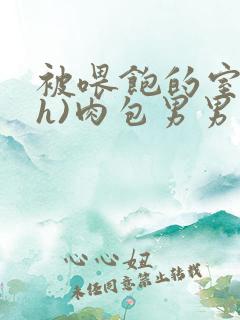 被喂饱的室
h)肉包男男
心心妞
未经同意禁止转载